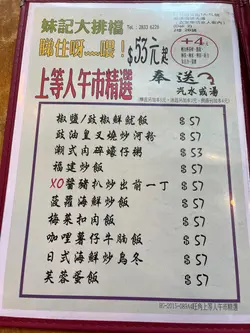 妹記大排檔
Tel: 2833 6226
睇住呀~~喂!
$53元起
+4元
上等人午市精選
奉送
汽水或湯
椒鹽/豉椒鮮魷飯 $57
豉油皇叉燒炒河粉 $57
潮式肉碎蠔仔粥 $53
福建炒飯 $57
XO醬豬扒炒出前一丁 $57
菠蘿海鮮炒飯 $57
梅菜扣肉飯 $57
咖喱薯仔牛腩飯 $57
日式海鮮炒烏冬 $57
芙蓉蛋飯 $57